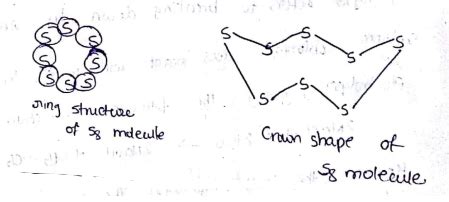 S
S S
S S
S S S
ring structure
of S8 molecule
S S S S S
S S S
Crown shape of
S8 molecule